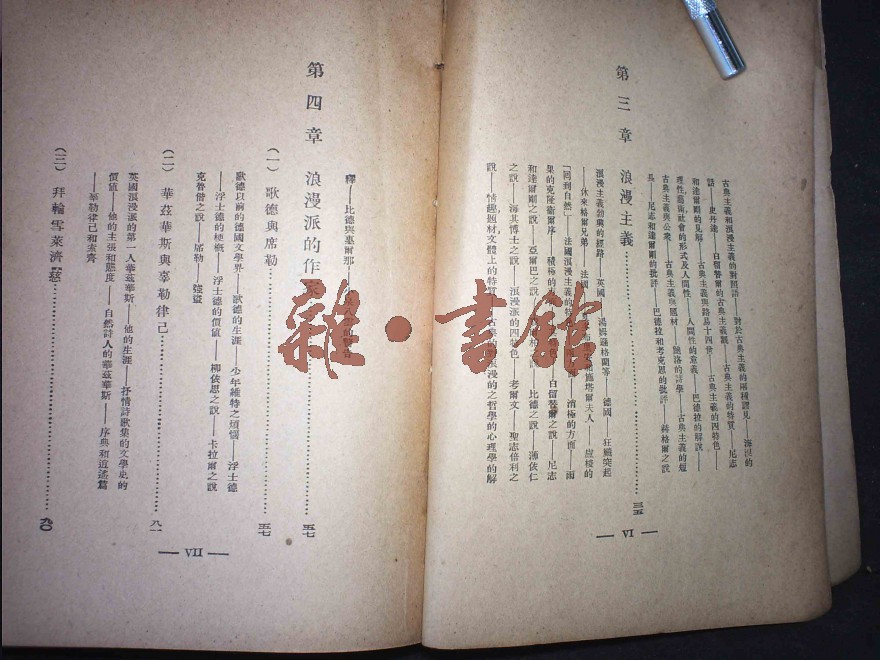 古典主義和浪漫主義的對照語——對於古典主義的兩種謬見——海涅的
話——史丹達——白留替爾的古典主義觀——古典主義的特質——尼志
和達爾爾的見解——古典主義與路易十四世——古典主義的四特色——
理性、藝術社會的形式及人間性——人間性的意義——巴德拉的解說——
古典主義與公衆——古典主義與題材——鮑洛的詩學——古典主義的短
長——尼志和達爾爾的批評——巴德拉和考克思的批評——赫格爾之說
第三章 浪漫主義 三五
浪漫主義勃興的經路——英國——湯姆遜格蘭等——德國——狂飈突起
——休來格爾兄弟——法國——施塔爾夫人——盧梭的
「囘到自然」——法國浪漫主義的特——消極的方面——雨
果的克陵威爾序——積極的方——白留替爾之說——尼志
和達爾爾之說——亞爾巴之說——比德之說——薄依仁
之說——海其博士之說——浪漫派的四特色——考爾文——聖志倍利之
說——情趣題材文體上的特質——古典的浪漫的之哲學的心理學的解
— VI —
釋——比德與惠爾那——的警告
第四章 浪漫派的作家 五七
（一） 歌德與席勒 五七
歌德以前的德國文學界——歌德的生涯——少年維特之煩惱——浮士德
——浮士德的梗概——浮士德的價值——柳依思之說——卡拉爾之說
克魯偕之說——席勒——強盜
（二） 華茲華斯與辜勒律己 八一
英國浪漫派的第一人華茲華斯——他的生涯——抒情詩歌集的文學史的
價值——他的主張和態度——自然詩人的華茲華斯——序典和逍遙篇
——辜勒律己和索齊
（三） 拜輪雪萊濟慈 九〇
— VII —
雜·書館